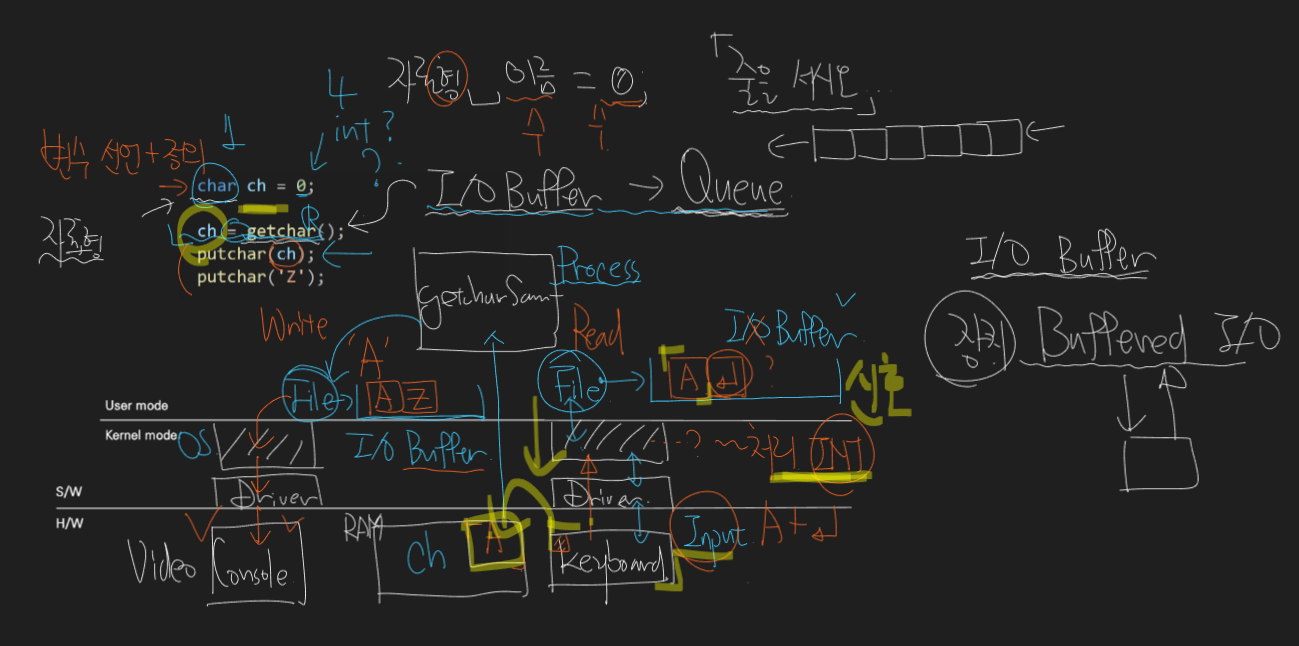 자료형 이름 = 0;
「줄을 서시오」
4
int?
?
1
변수 선언+정의
char ch = 0;
ch = getchar();
putchar(ch);
putchar('Z');
자료형
I/O Buffer → Queue
getcharSam
Process
I/O Buffer
장치 Buffered I/O
Write
'A'
Read
I/O Buffer
File
A Z
File
A ↲ ?
신호
User mode
Kernel mode
OS
I/O Buffer
...? ~처리 INT
S/W
Driver
Driver
H/W
Video
Console
RAM
ch
A
A
Keyboard
Input A+↲